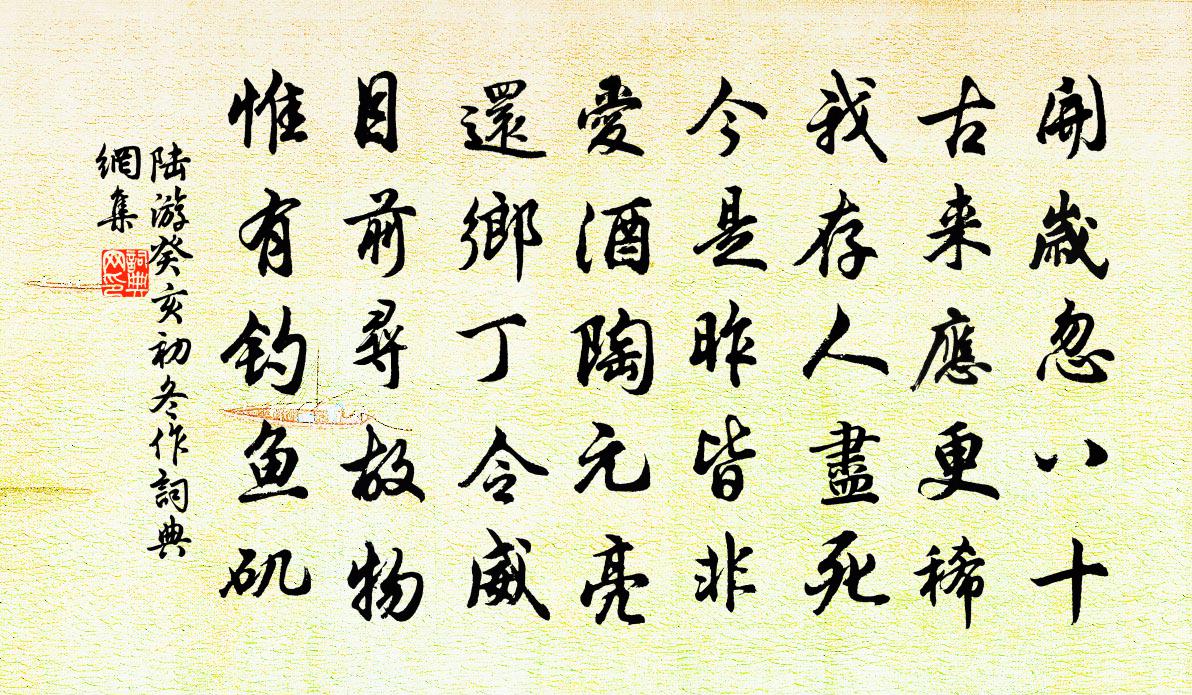 開歲忽八十
古来應更稀
我存人盡死
今是昨皆非
愛酒陶元亮
還鄉丁令威
目前尋故物
惟有釣魚矶
陆游癸亥初冬作詞典
網集
詞典
网印